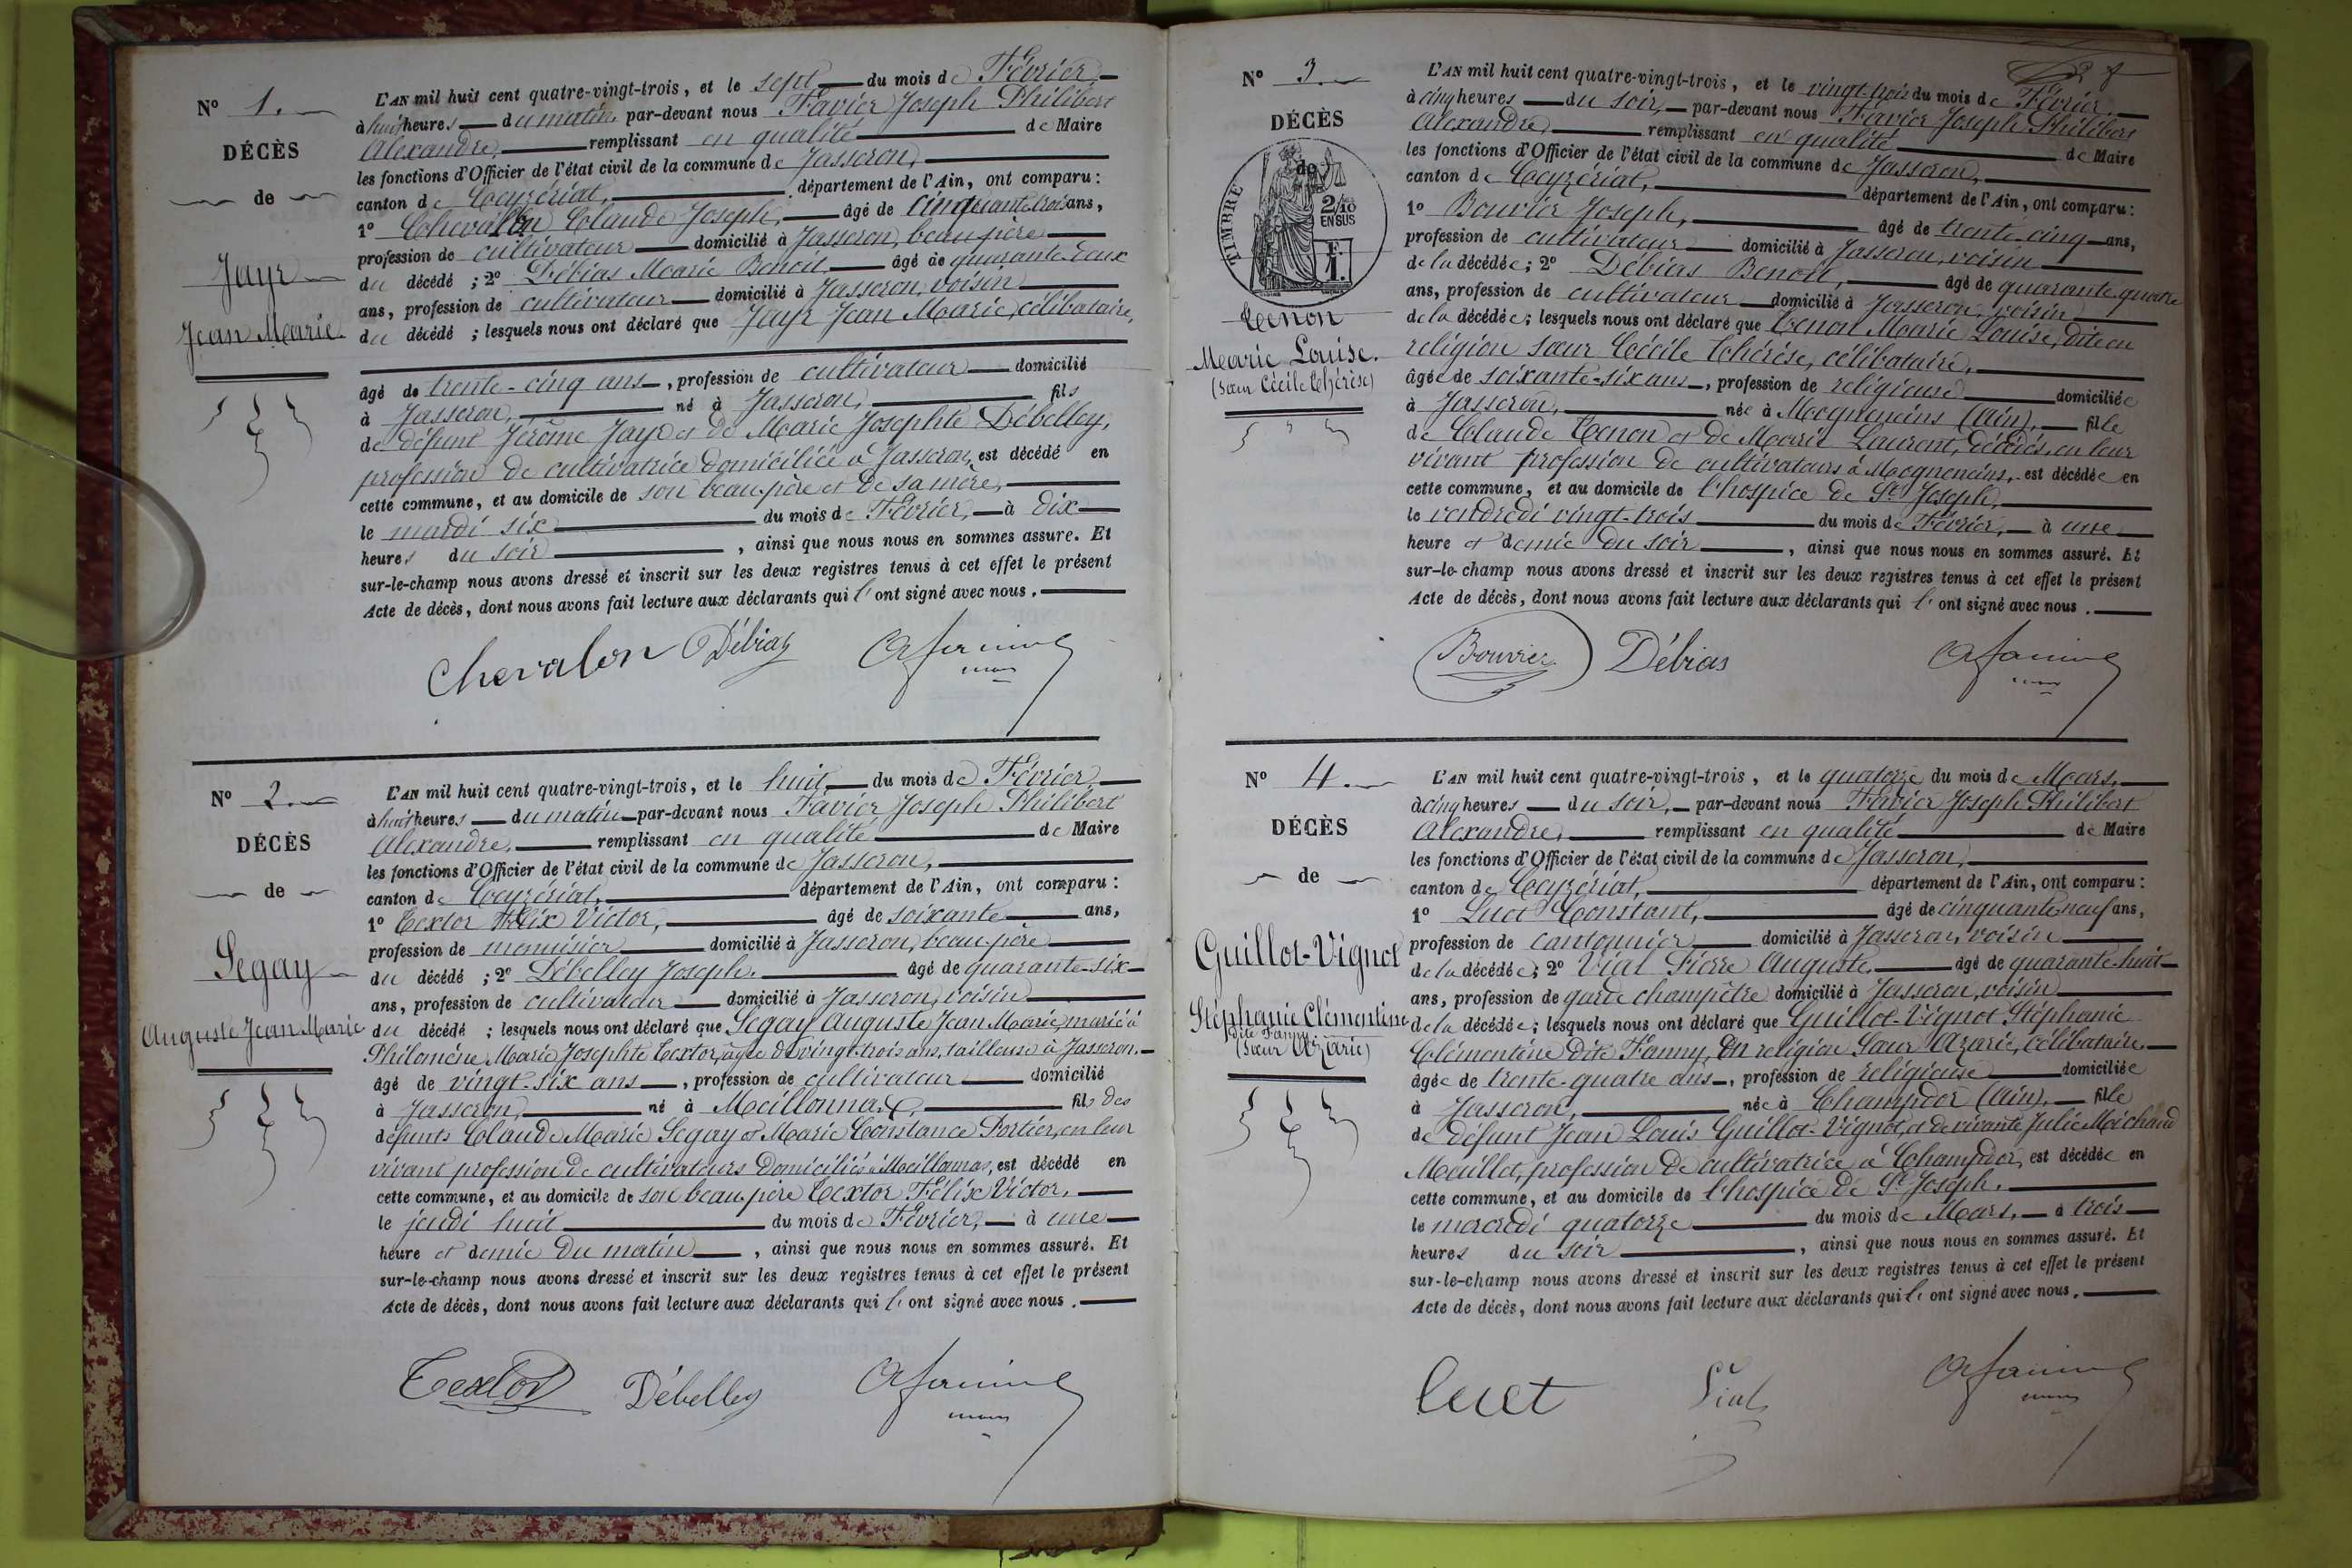 N° 1.
DÉCÈS
de
Jayr
Jean Marie.
L'AN mil huit cent quatre-vingt-trois, et le sept du mois de Février
à huit heures du matin par-devant nous Favier Joseph Philibert
Alexandre, remplissant en qualité de Maire
les fonctions d'Officier de l'état civil de la commune de Jasseron,
canton de Ceyzériat, département de l'Ain, ont comparu :
1° Chevalon Claude Joseph, âgé de cinquante trois ans,
profession de cultivateur domicilié à Jasseron, beau-père
du décédé ; 2° Débias Marie Benoit, âgé de quarante-deux
ans, profession de cultivateur domicilié à Jasseron, voisin
du décédé ; lesquels nous ont déclaré que Jayr Jean Marie, célibataire,
âgé de trente-cinq ans, profession de cultivateur domicilié
à Jasseron, né à Jasseron, fils
de défunt Jérôme Jayr et de Marie Josephte Débelley,
profession de cultivatrice domiciliée à Jasseron, est décédé en
cette commune, et au domicile de son beau-père et de sa mère,
le mardi six du mois de Février, à dix
heures du soir, ainsi que nous nous en sommes assuré. Et
sur-le-champ nous avons dressé et inscrit sur les deux registres tenus à cet effet le présent
Acte de décès, dont nous avons fait lecture aux déclarants qui l'ont signé avec nous.
Chevalon Débias
N° 2.
DÉCÈS
de
Segay
Auguste Jean Marie
L'AN mil huit cent quatre-vingt-trois, et le huit du mois de Février
à huit heures du matin par-devant nous Favier Joseph Philibert
Alexandre, remplissant en qualité de Maire
les fonctions d'Officier de l'état civil de la commune de Jasseron,
canton de Ceyzériat, département de l'Ain, ont comparu :
1° Textor Félix Victor, âgé de soixante ans,
profession de menuisier domicilié à Jasseron, beau-père
du décédé ; 2° Débelley Joseph, âgé de quarante-six
ans, profession de cultivateur domicilié à Jasseron, voisin
du décédé ; lesquels nous ont déclaré que Segay Auguste Jean Marie, marié à
Philomène Marie Josephte Textor, âgée de vingt-trois ans, tailleuse à Jasseron.
âgé de vingt-six ans, profession de cultivateur domicilié
à Jasseron, né à Meillonnas, fils des
défunts Claude Marie Segay et Marie Constance Portier, en leur
vivant profession de cultivateurs domiciliés à Meillonnas, est décédé en
cette commune, et au domicile de son beau-père Textor Félix Victor,
le jeudi huit du mois de Février, à une
heure et demie du matin, ainsi que nous nous en sommes assuré. Et
sur-le-champ nous avons dressé et inscrit sur les deux registres tenus à cet effet le présent
Acte de décès, dont nous avons fait lecture aux déclarants qui l'ont signé avec nous.
Textor Débelley
N° 3
DÉCÈS
de
TIMBRE
2/10
EN SUS
Tenon
Marie Louise.
(Sœur Cécile Thérèse)
L'AN mil huit cent quatre-vingt-trois, et le vingt-trois du mois de Février
à cinq heures du soir, par-devant nous Favier Joseph Philibert
Alexandre, remplissant en qualité de Maire
les fonctions d'Officier de l'état civil de la commune de Jasseron,
canton de Ceyzériat, département de l'Ain, ont comparu :
1° Bouvier Joseph, âgé de trente-cinq ans,
profession de cultivateur domicilié à Jasseron, voisin
de la décédée ; 2° Débias Benoit, âgé de quarante-quatre
ans, profession de cultivateur domicilié à Jasseron, voisin
de la décédée ; lesquels nous ont déclaré que Tenon Marie Louise, dite en
religion sœur Cécile Thérèse, célibataire,
âgée de soixante-six ans, profession de religieuse domiciliée
à Jasseron, née à Mogneneins (Ain), fille
de Claude Tenon et de Marie Laurent, décédés, en leur
vivant profession de cultivateurs à Mogneneins, est décédée en
cette commune, et au domicile de l'hospice de St Joseph,
le vendredi vingt-trois du mois de Février, à une
heure et demie du soir, ainsi que nous nous en sommes assuré. Et
sur-le-champ nous avons dressé et inscrit sur les deux registres tenus à cet effet le présent
Acte de décès, dont nous avons fait lecture aux déclarants qui l'ont signé avec nous.
Bouvier Débias
N° 4.
DÉCÈS
de
Guillot-Vignot
Stéphanie Clémentine
dite Fanny
(Sœur Azarie)
L'AN mil huit cent quatre-vingt-trois, et le quatorze du mois de Mars,
à cinq heures du soir, par-devant nous Favier Joseph Philibert
Alexandre, remplissant en qualité de Maire
les fonctions d'Officier de l'état civil de la commune de Jasseron,
canton de Ceyzériat, département de l'Ain, ont comparu :
1° Luot Constant, âgé de cinquante-neuf ans,
profession de cantonnier domicilié à Jasseron, voisin
de la décédée ; 2° Vial Pierre Auguste, âgé de quarante-huit
ans, profession de garde champêtre domicilié à Jasseron, voisin
de la décédée ; lesquels nous ont déclaré que Guillot-Vignot Stéphanie
Clémentine dite Fanny, en religion Sœur Azarie, célibataire.
âgée de trente-quatre ans, profession de religieuse domiciliée
à Jasseron, née à Champdor (Ain), fille
de défunt Jean Louis Guillot-Vignot, et de vivante Julie Michaud
Maillet, profession de cultivatrice à Champdor, est décédée en
cette commune, et au domicile de l'hospice de St Joseph.
le mercredi quatorze du mois de Mars, à trois
heures du soir, ainsi que nous nous en sommes assuré. Et
sur-le-champ nous avons dressé et inscrit sur les deux registres tenus à cet effet le présent
Acte de décès, dont nous avons fait lecture aux déclarants qui l'ont signé avec nous.
Luet Vial